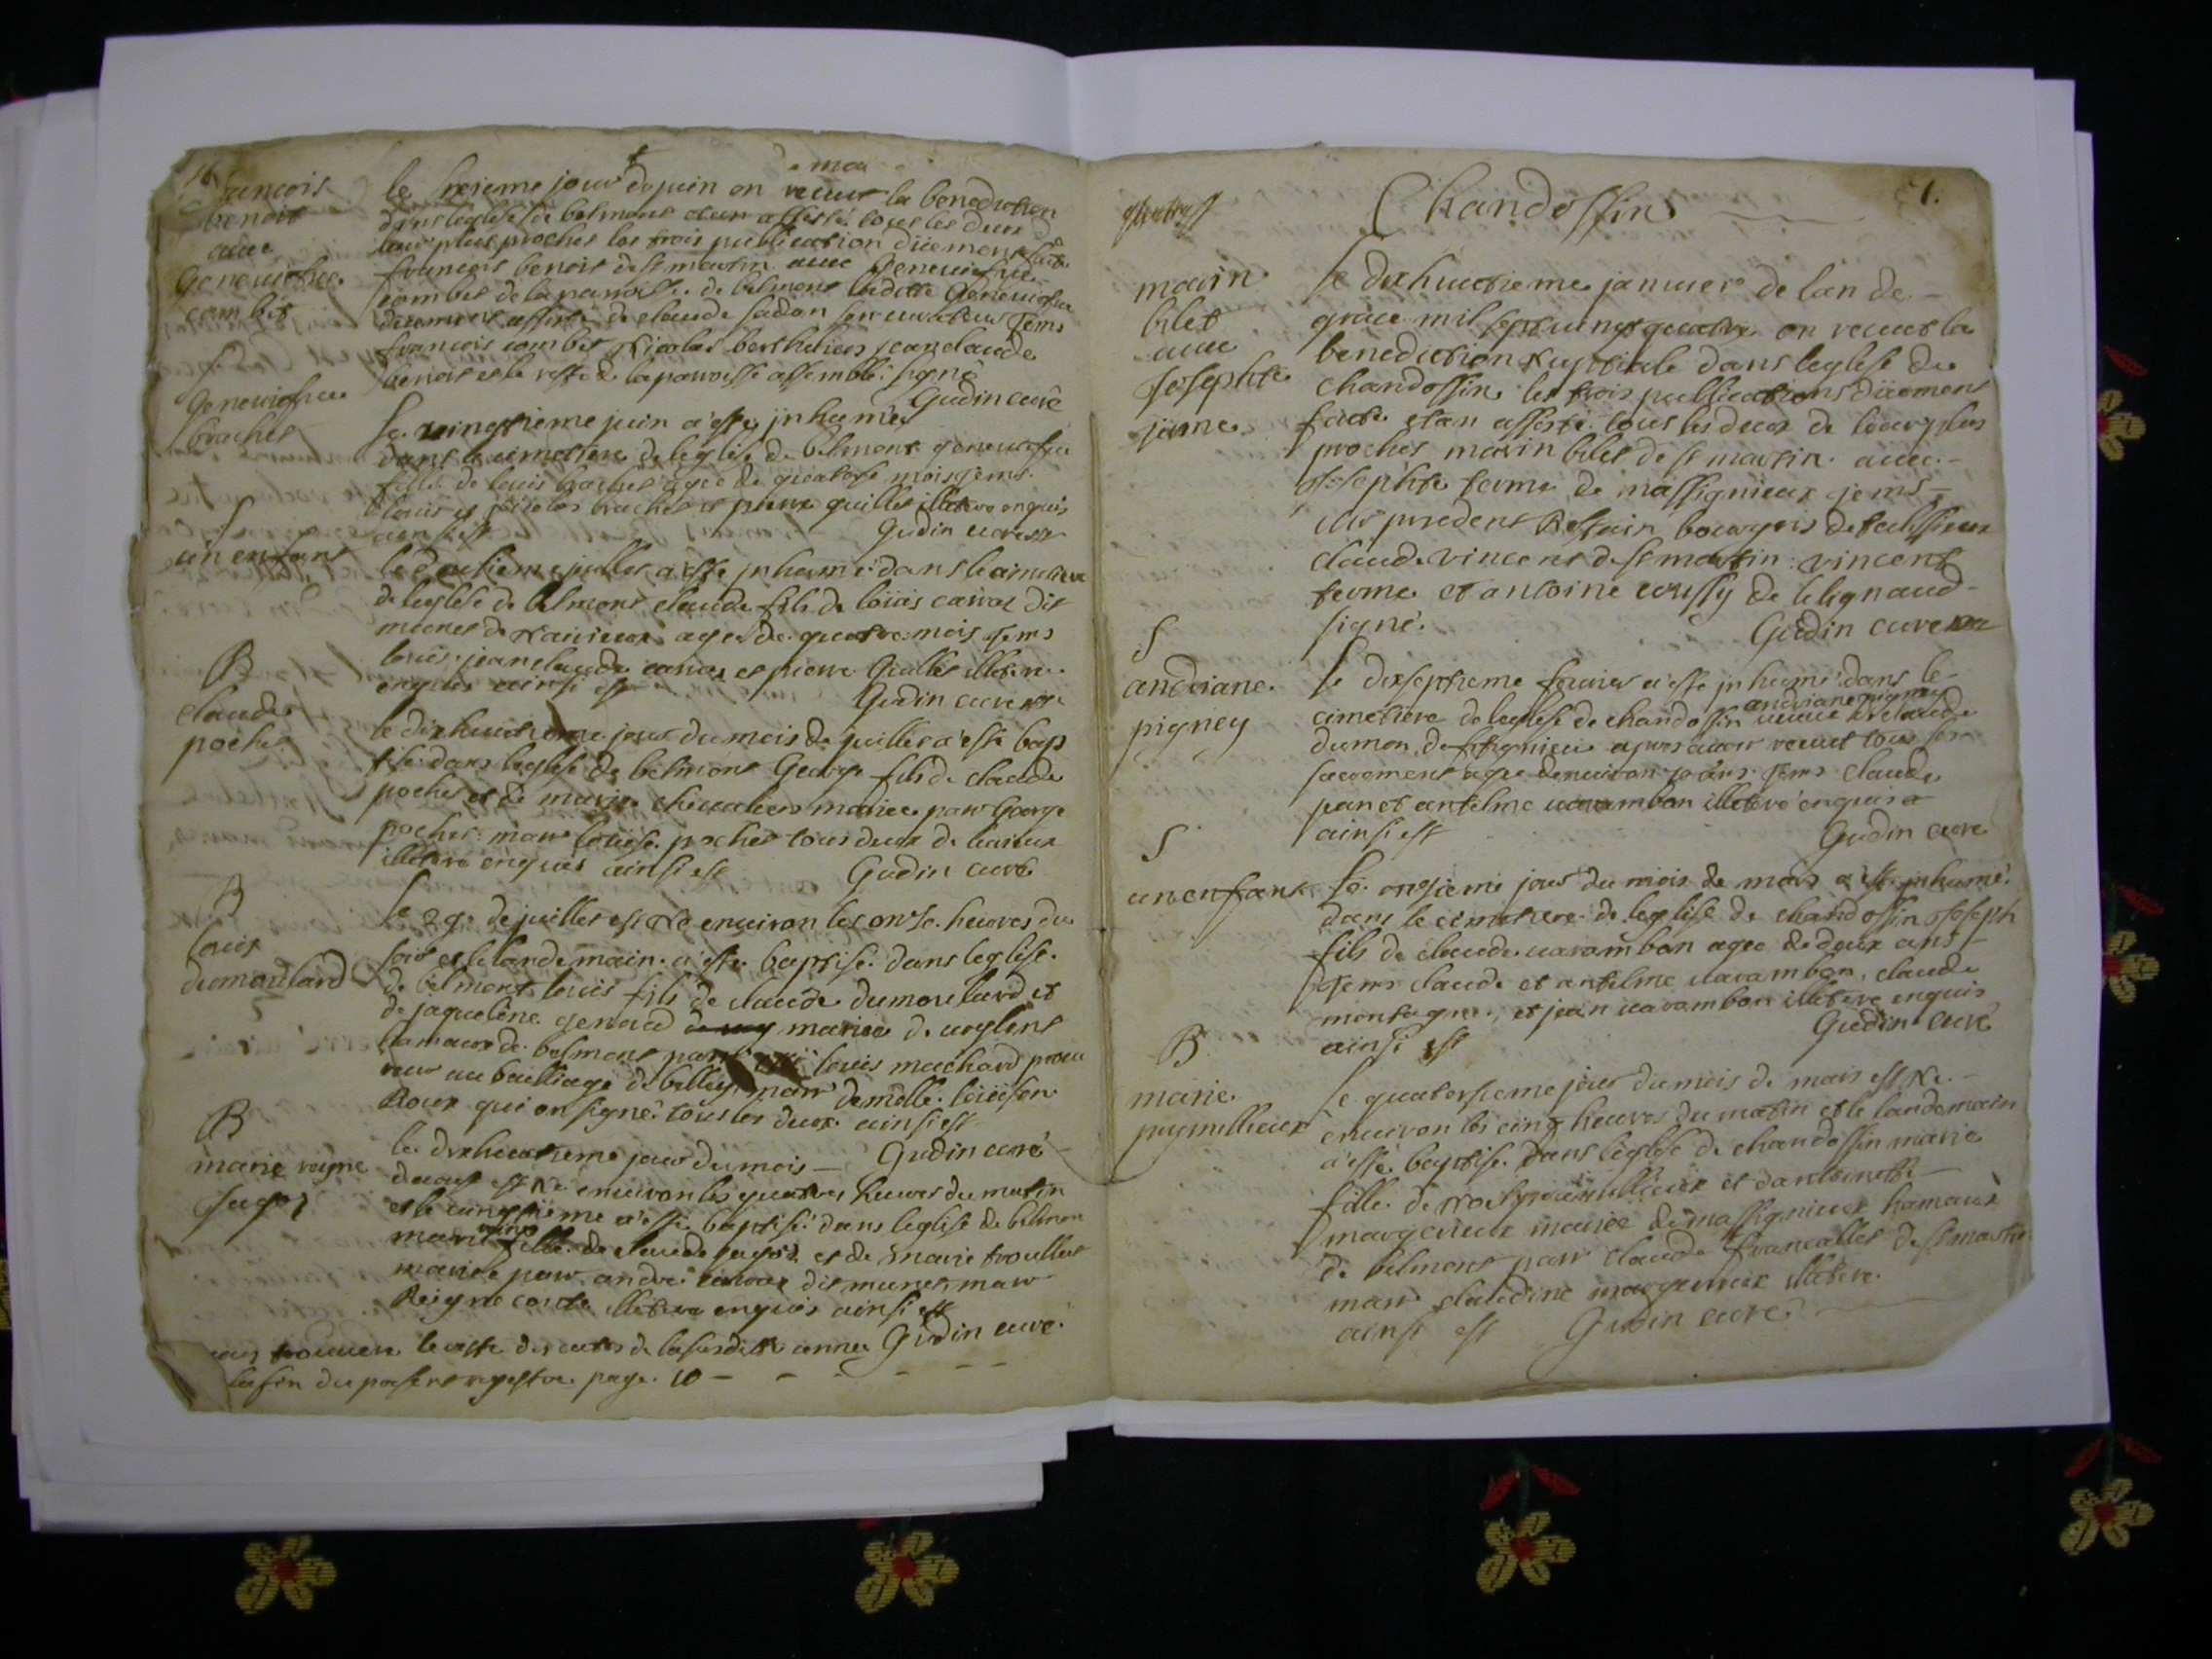 françois
benoit
avec
Genevieſve
combet
le treizieme jour de juin on receut la benediction
dans leglise de belmont étan assisté tous les deux d
leur plus proches les trois publication düement faite
françois benoit de st martin avec Genevieſve
combet de la parroisse de belmont ladite Genevieſve
düement assisté de claude sadon son curateur Tems
françois combet Nicolas berthelier jean claude
benoit et le reste de la parroisse assemblé signé
Gudin curé
S
Genevieſve
brachet
le vingtieme juin a esté jnhumée
dans le cimetiere de leglise de belmont genevieſve
fille de louis brachet agée de quatorse mois tems
louis et nicolas brachet et pierre guillet illetere enquis
ainsi est
Gudin curé
S
un enfant
le dousieme juillet a esté jnhumé dans le cimetiere
de leglise de belmont claude fils de loüis cauvas dit
munet de Navieux agé de quatre mois Tems
loüis jean claude cauvas et pierre Guillet illetere
enquis ainsi est
Gudin curé
B
claude
pochet
le dixhuitieme jour du mois de juillet a esté bap
tisé dans leglise de belmont George fils de claude
pochet et de marie chevalier mariée par George
pochet mar loüise pochet tous deux de
illetere enquis ainsi est
Gudin curé
B
louis
dumoulard
le 29e de juillet est Né environ les onse heures du
soir et le landemain a esté baptisé dans leglise
de belmont loüis fils de claude dumoulard et
de jaqueléne genoud mariée de voglent
hamaux de belmont par louis machard procu
reur au bailliage de belley mar demelle loüison
Roux qui on signé tous les deux ainsi est
Gudin curé
B
marie reyne
fugoz
le dixhuitieme jour du mois
daout est Né environ les quatres heures du matin
et le vingtieme a esté baptisé dans leglise de belmon
marie reyne fille de claude fugoz et de marie troullet
mariée par andré cauvas dit munet mar
Reigne conte illetere enquis ainsi est
Gudin curé
trouvera le reste des actes de la susditte année
la fin du present registre page 10
7.
Chandossin
marin
bilet
avec
Josephte
jame
le dixhuictieme janvier de lan de
grace mil sept vingt quatre on receut la
benediction Nuptiale dans leglise de
chandossin les trois publications düement
faite étan assisté tous les deux de leur plus
proches marin bilet de st martin avec
Josephte ferme de massignieux tems
claude vincent de st martin vincent
ferme et antoine coussy de lelignaud
signé
Gudin curé
S
andriane
pigney
le dixseptieme fevrier a esté jnhumé dans le
cimetiere de leglise de chandossin andriane pigney veuve de claude
dumon de apres avoir receut tous ses
sacrement agée denviron ans Tems claude
jean et antelme varambon illetere enquis
ainsi est
Gudin curé
S
un enfant
le onsieme jour du mois de mars a esté jnhumé
dans le cimetiere de leglise de chandossin Joseph
fils de claude varambon agée de deux ans
Tems claude et antelme varambon claude
montagne et jean varambon illetere enquis
ainsi est
Gudin curé
B
marie
pugnillieux
le quatorsieme jour du mois de mars est Né
environ les cinq heures du matin et le landemain
a esté baptisé dans leglise de chandossin marie
fille de et dantoinette
margerieux mariée de massignieux hamaux
de belmont par claude francallet de st martin
mar claudine margerieux illetere
ainsi est
Gudin curé